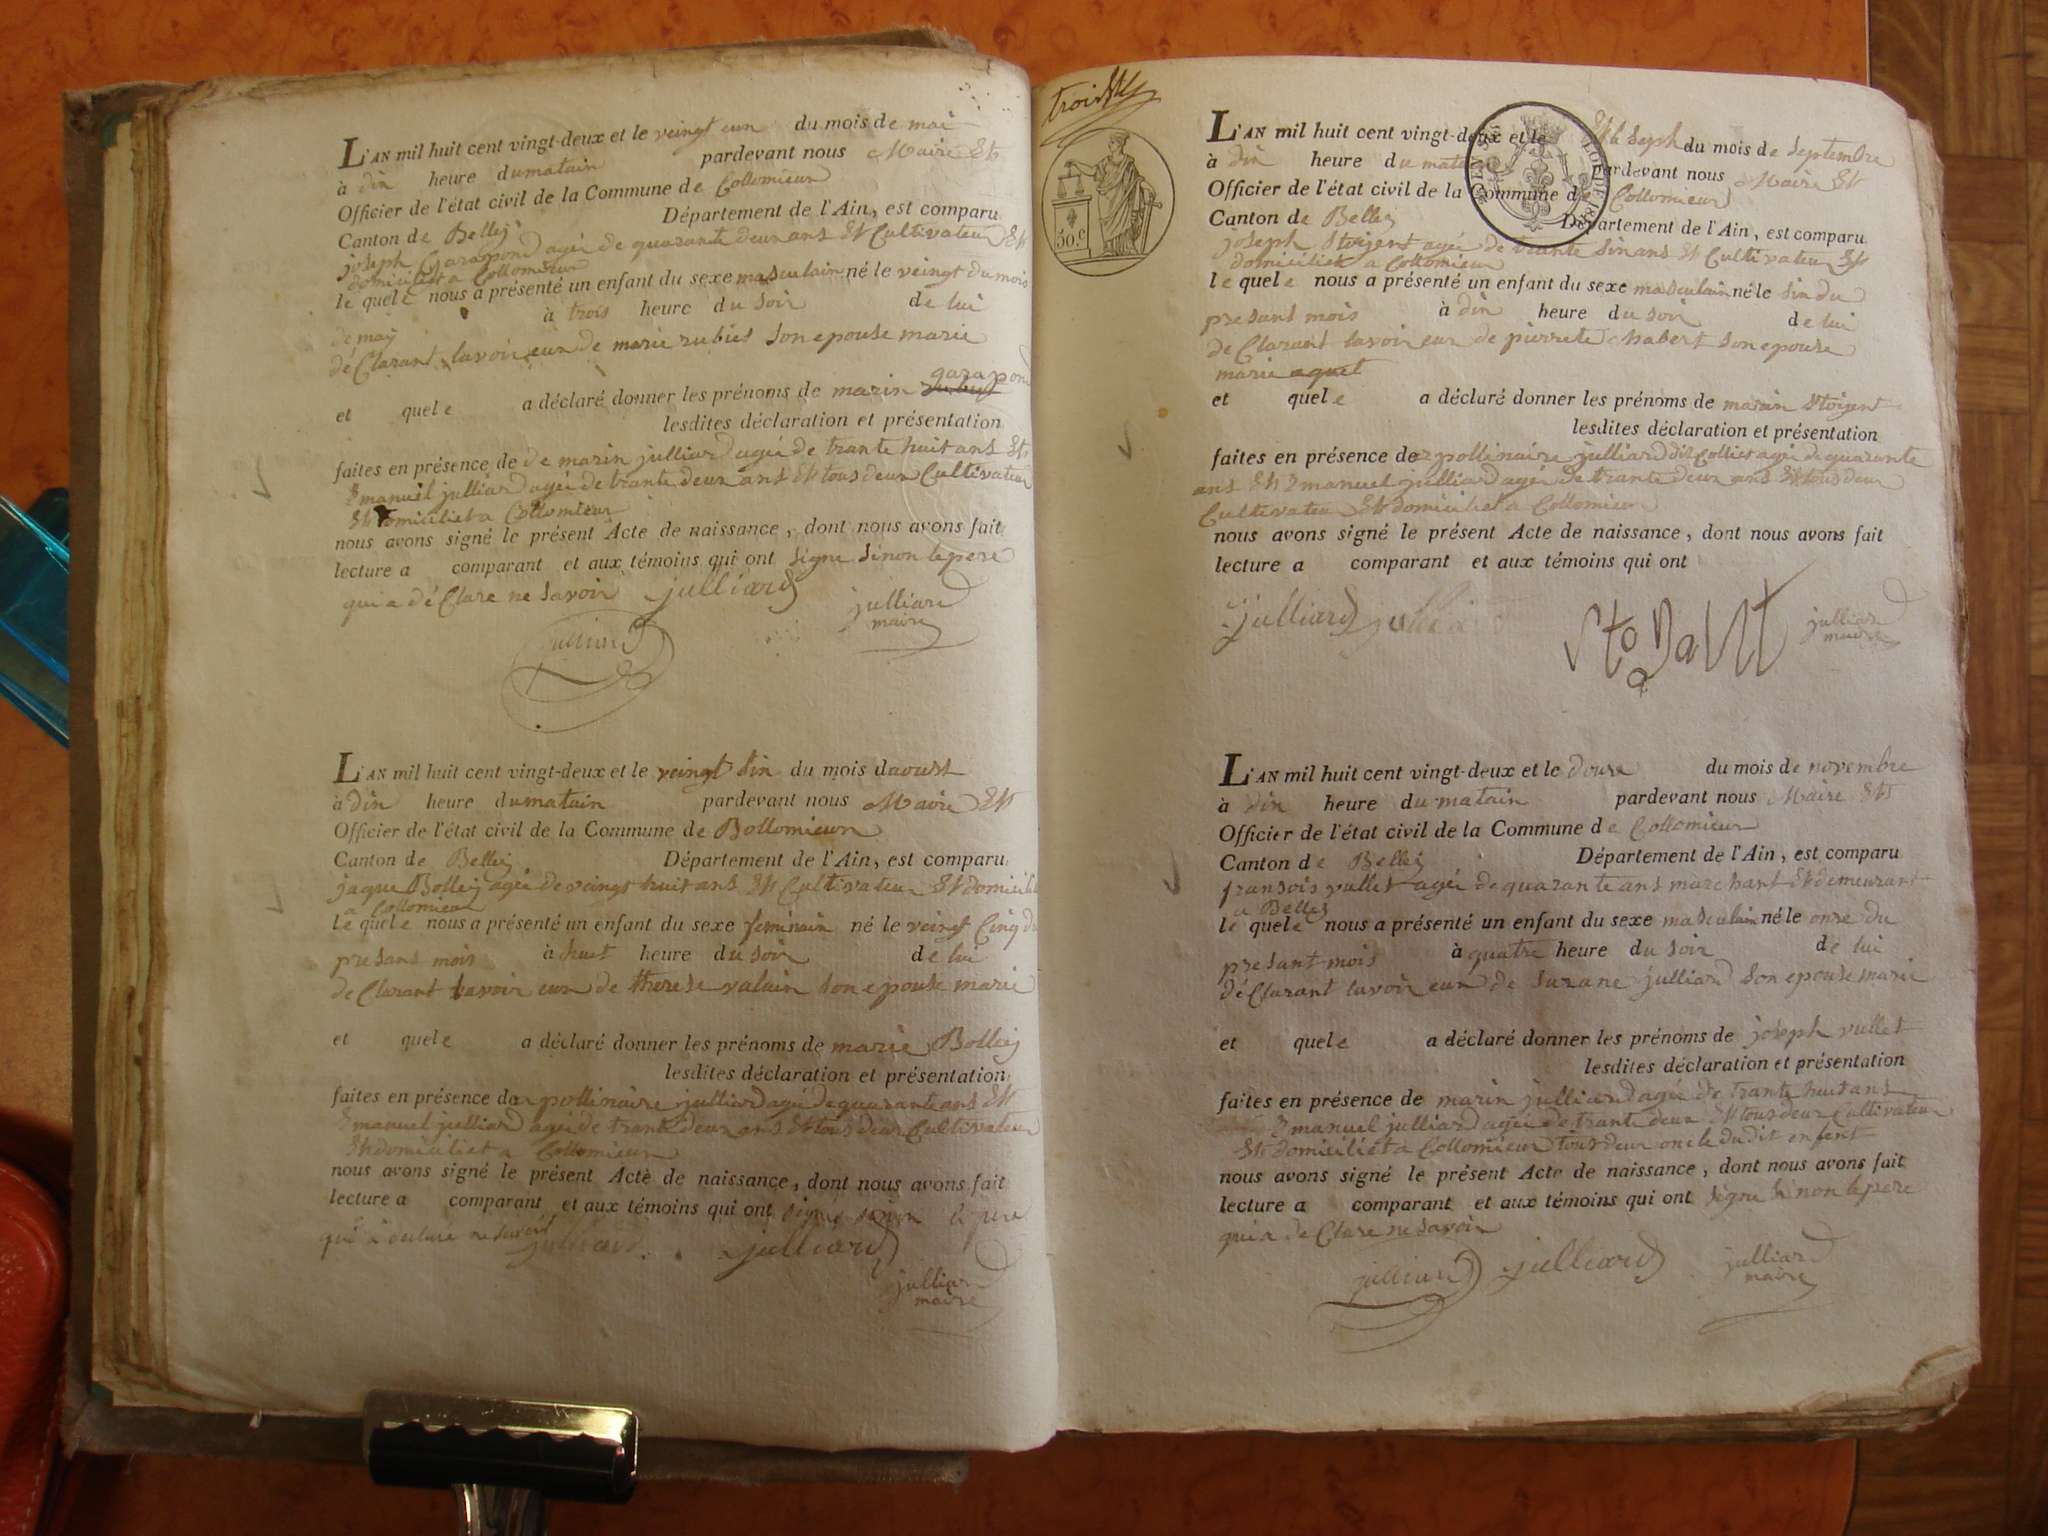 L'AN mil huit cent vingt-deux et le veingt eun du mois de mai
à din heure du matain pardevant nous Maire Et
Officier de l'état civil de la Commune de Collomieux
Canton de Belley Département de l'Ain, est comparu
joseph garapond agée de quarante deux ans Et Cultivateur Et
domiciliet a Collomieux
le quele nous a présenté un enfant du sexe masculain né le veingt du mois
de may à trois heure du soir de lui
déClarant lavoir eux de marie rubiet son epouse marie
garapond
et quele a déclaré donner les prénoms de marin
lesdites déclaration et présentation
faites en présence de de marin julliard agée de trante huit ans Et
Emanuel julliard agée de trante deux ans Et tous deux Cultivateur
Et domiciliet a Collomieux
nous avons signé le présent Acte de naissance, dont nous avons fait
lecture a comparant et aux témoins qui ont signe sinon le pere
qui a déClare ne savoir julliard
julliard
maire
julliard
L'AN mil huit cent vingt-deux et le veingt sin du mois daoust
à din heure du matain pardevant nous Maire Et
Officier de l'état civil de la Commune de Bollomieux
Canton de Belley Département de l'Ain, est comparu
jaque Bolley agée de veingt huit ans Et Cultivateur Et domicilié
a Collomieux
le quele nous a présenté un enfant du sexe feminain né le veingt Cinq du
presans mois à huit heure du soir de lui
deClarant lavoir eux de therese valain son epouse marie
et quele a déclaré donner les prénoms de marie Bolley
lesdites déclaration et présentation
faites en présence de apollinaire julliard agé de quarante ans Et
Emanuel julliard agée de trante deux ans Et tous deux Cultivateur
Et domiciliet a Collomieux
nous avons signé le présent Acte de naissance, dont nous avons fait
lecture a comparant et aux témoins qui ont signe sinon le pere
qui a declare ne savoir
julliard julliard
julliard
maire
50.c
L'AN mil huit cent vingt-deux et le du mois de septembre
à din heure du matain pardevant nous Maire Et
Officier de l'état civil de la Commune de Collomieux
Canton de Belley Département de l'Ain, est comparu
joseph Stoigent agée de trante sin ans Et Cultivateur Et
domiciliet a Collomieux
le quele nous a présenté un enfant du sexe masculain né le sin du
presant mois à din heure du soir de lui
deClarant lavoir eux de pierrete chabert son epouse
marie
et quele a déclaré donner les prénoms de marain Stoigent
lesdites déclaration et présentation
faites en présence de apollinaire julliard dit Colliet agée de quarante
ans Et Emanuel julliard agée de trante deux ans Et tous deux
Cultivateur Et domiciliet a Collomieux
nous avons signé le présent Acte de naissance, dont nous avons fait
lecture a comparant et aux témoins qui ont
julliard
julliard
maire
L'AN mil huit cent vingt-deux et le douze du mois de novembre
à din heure du matain pardevant nous Maire Et
Officier de l'état civil de la Commune de Collomieux
Canton de Belley Département de l'Ain, est comparu
fransois vullet agée de quarante ans marchant Et demeurant
a Belley
le quele nous a présenté un enfant du sexe masculain né le onze du
presant mois à quatre heure du soir de lui
déClarant lavoir eux de suzane julliard son epouse marie
et quele a déclaré donner les prénoms de joseph vullet
lesdites déclaration et présentation
faites en présence de marin julliard agée de trante huit ans
Emanuel julliard agée de trante deux Et tous deux Cultivateur
Et domiciliet a Collomieux tous deux oncle du dit enfent
nous avons signé le présent Acte de naissance, dont nous avons fait
lecture a comparant et aux témoins qui ont signe sinon le pere
qui a deClare ne savoir
julliard julliard julliard
maire